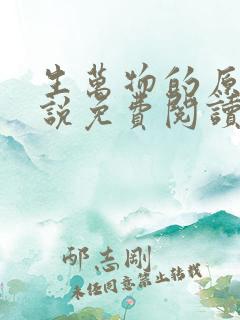 生萬物的原
說免費閱讀
邴志剛
未经同意禁止转载